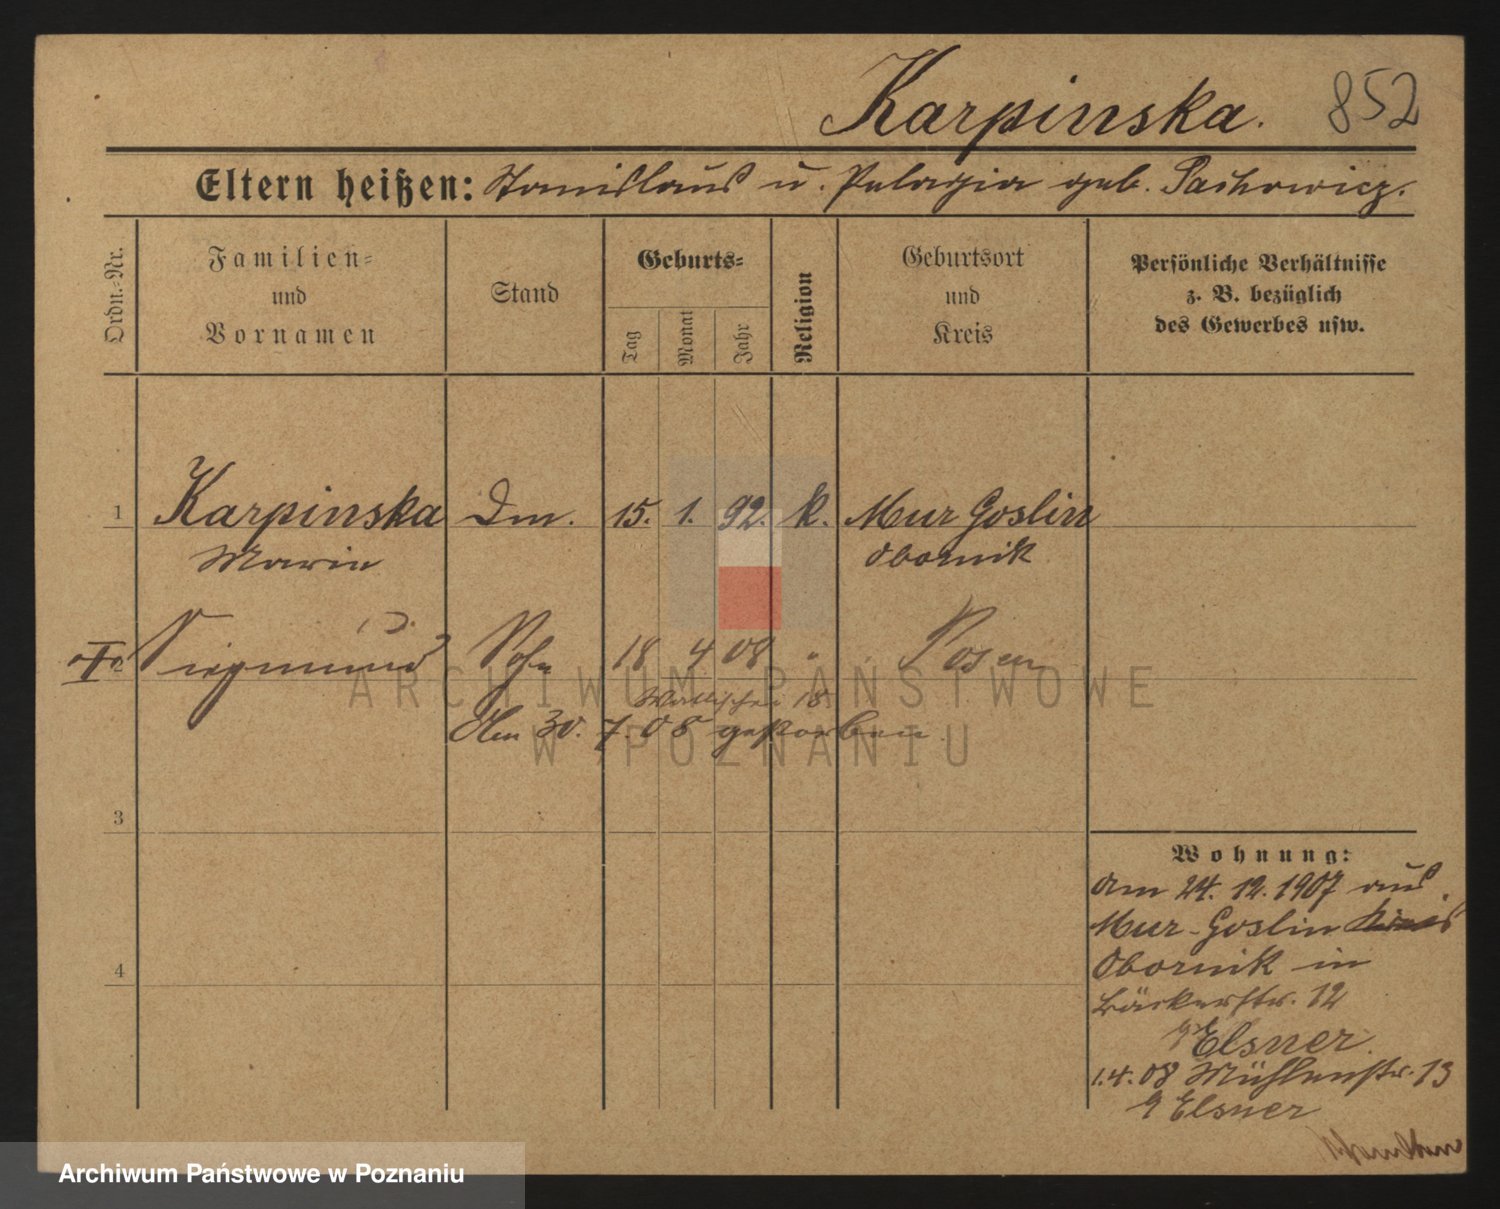 Karpinska. 852
Eltern heißen: Stanislaus u. Pelagia geb. Pachowicz.
Ordn.-Nr.
Familien-
und
Vornamen
Stand
Geburts-
Tag
Monat
Jahr
Religion
Geburtsort
und
Kreis
Persönliche Verhältnisse
z. B. bezüglich
des Gewerbes usw.
1 Karpinska Dm. 15. 1. 92. k. Mur Goslin
Maria Obornik
2 Siegmund Sohn 18 4 08 " Posen
18
Am 30. 7. 08 gestorben
3
4
Wohnung:
Am 24. 12. 1907 aus
Mur-Goslin Kreis
Obornik in
Bäckerstr. 12
Elsner
1.4.08 Mühlenstr. 13
Elsner
ARCHIWUM PAŃSTWOWE
W POZNANIU
Archiwum Państwowe w Poznaniu